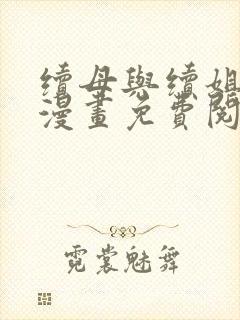 續母與續姐
漫畫免費閱
霓裳魅舞